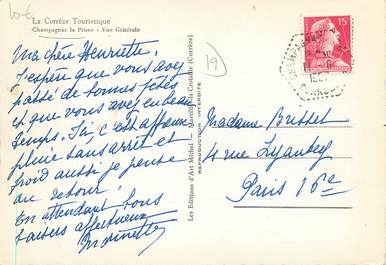 10€
La Corrèze Touristique
Champagnac la Prune - Vue Générale
Ma chère Henriette.
J'espère que vous avez
passé de bonnes fêtes
et que vous avez eu beau
temps. Ici, c'est affreux
pluie sans arrêt et
froid aussi je pense
au retour.
En attendant tous
baisers affectueux
19
Les Editions d'Art Michel - Marcillac la Croisille (Corrèze)
REPRODUCTION INTERDITE
15F
Madame Brisset
4 rue Lyautey
Paris 16e